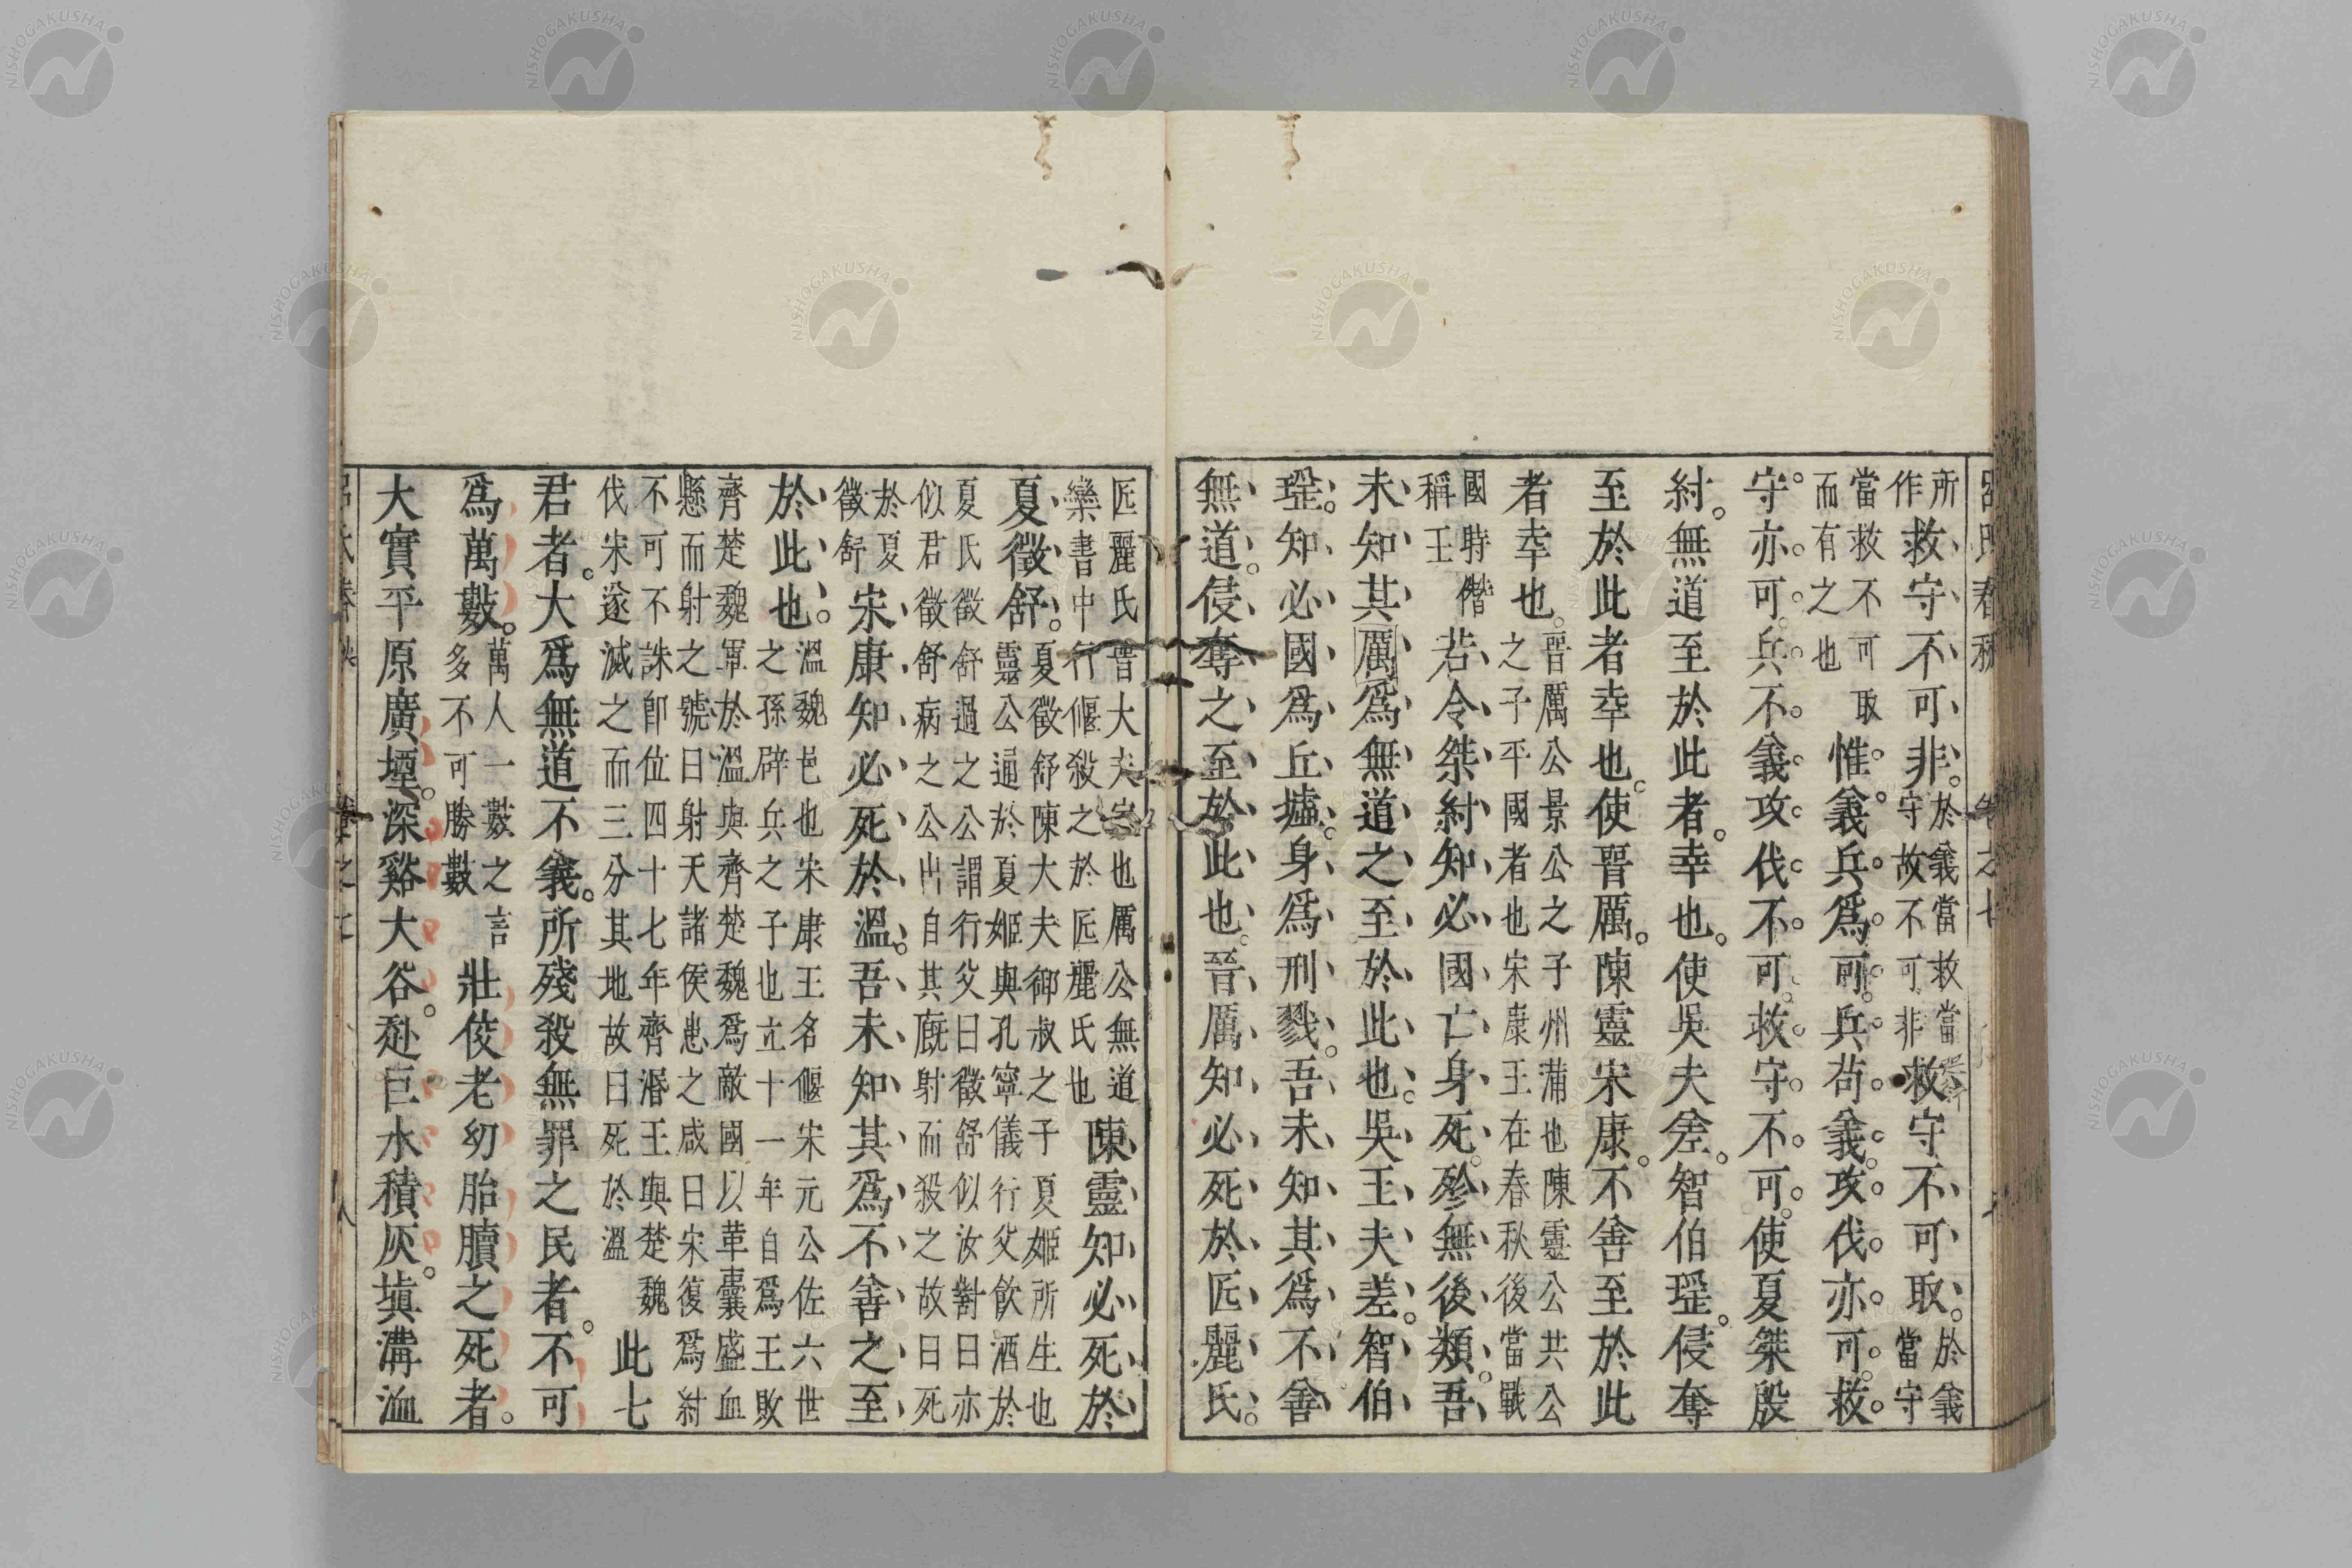 呂氏春秋 卷之七
所作救守不可非。於義當救當守故不可非救守不可取。於義當守
當救不可取而有之也惟義兵爲可。兵苟義。攻伐亦可。救
守。亦可。兵不義。攻伐不可。救守不可。使夏桀殷
紂。無道至於此者。幸也。使吳夫差。智伯瑶。侵奪
至於此者幸也。使晉厲。陳靈宋康。不善至於此
者幸也。晉厲公景公之子州蒲也陳靈公共公之子平國者也宋康王在春秋後當戰
國時僭稱王若令桀紂知必國亡身死。殄無後類。吾
未知其厲爲無道之至於此也。吳王夫差。智伯
瑶。知必國爲丘墟。身爲刑戮。吾未知其爲不善
無道。侵奪之至於此也。晉厲知必死於匠麗氏。
匠麗氏晉大夫家也厲公無道欒書中行偃殺之於匠麗氏也陳靈知必死於
夏徵舒。夏徵舒陳大夫御叔之子夏姬所生也靈公通於夏姬與孔寧儀行父飲酒於
夏氏徵舒過之公謂行父曰徵舒似汝對曰亦似君徵舒病之公出自其廐射而殺之故曰死
於夏徵舒宋康知必死於溫。吾未知其爲不善之至
於此也。溫魏邑也宋康王名偃宋元公佐六世之孫辟兵之子也立十一年自爲王敗
齊楚魏軍於溫與齊楚魏爲敵國以革囊盛血懸而射之號曰射天諸侯患之咸曰宋復爲紂
不可不誅即位四十七年齊湣王與楚魏伐宋遂滅之而三分其地故曰死於溫此七
君者。大爲無道不義。所殘殺無罪之民者。不可
爲萬數。萬人一數之言多不可勝數壯佼老幼胎䐁之死者。
大實平原廣堙。深谿大谷。赴巨水積灰。塡溝洫